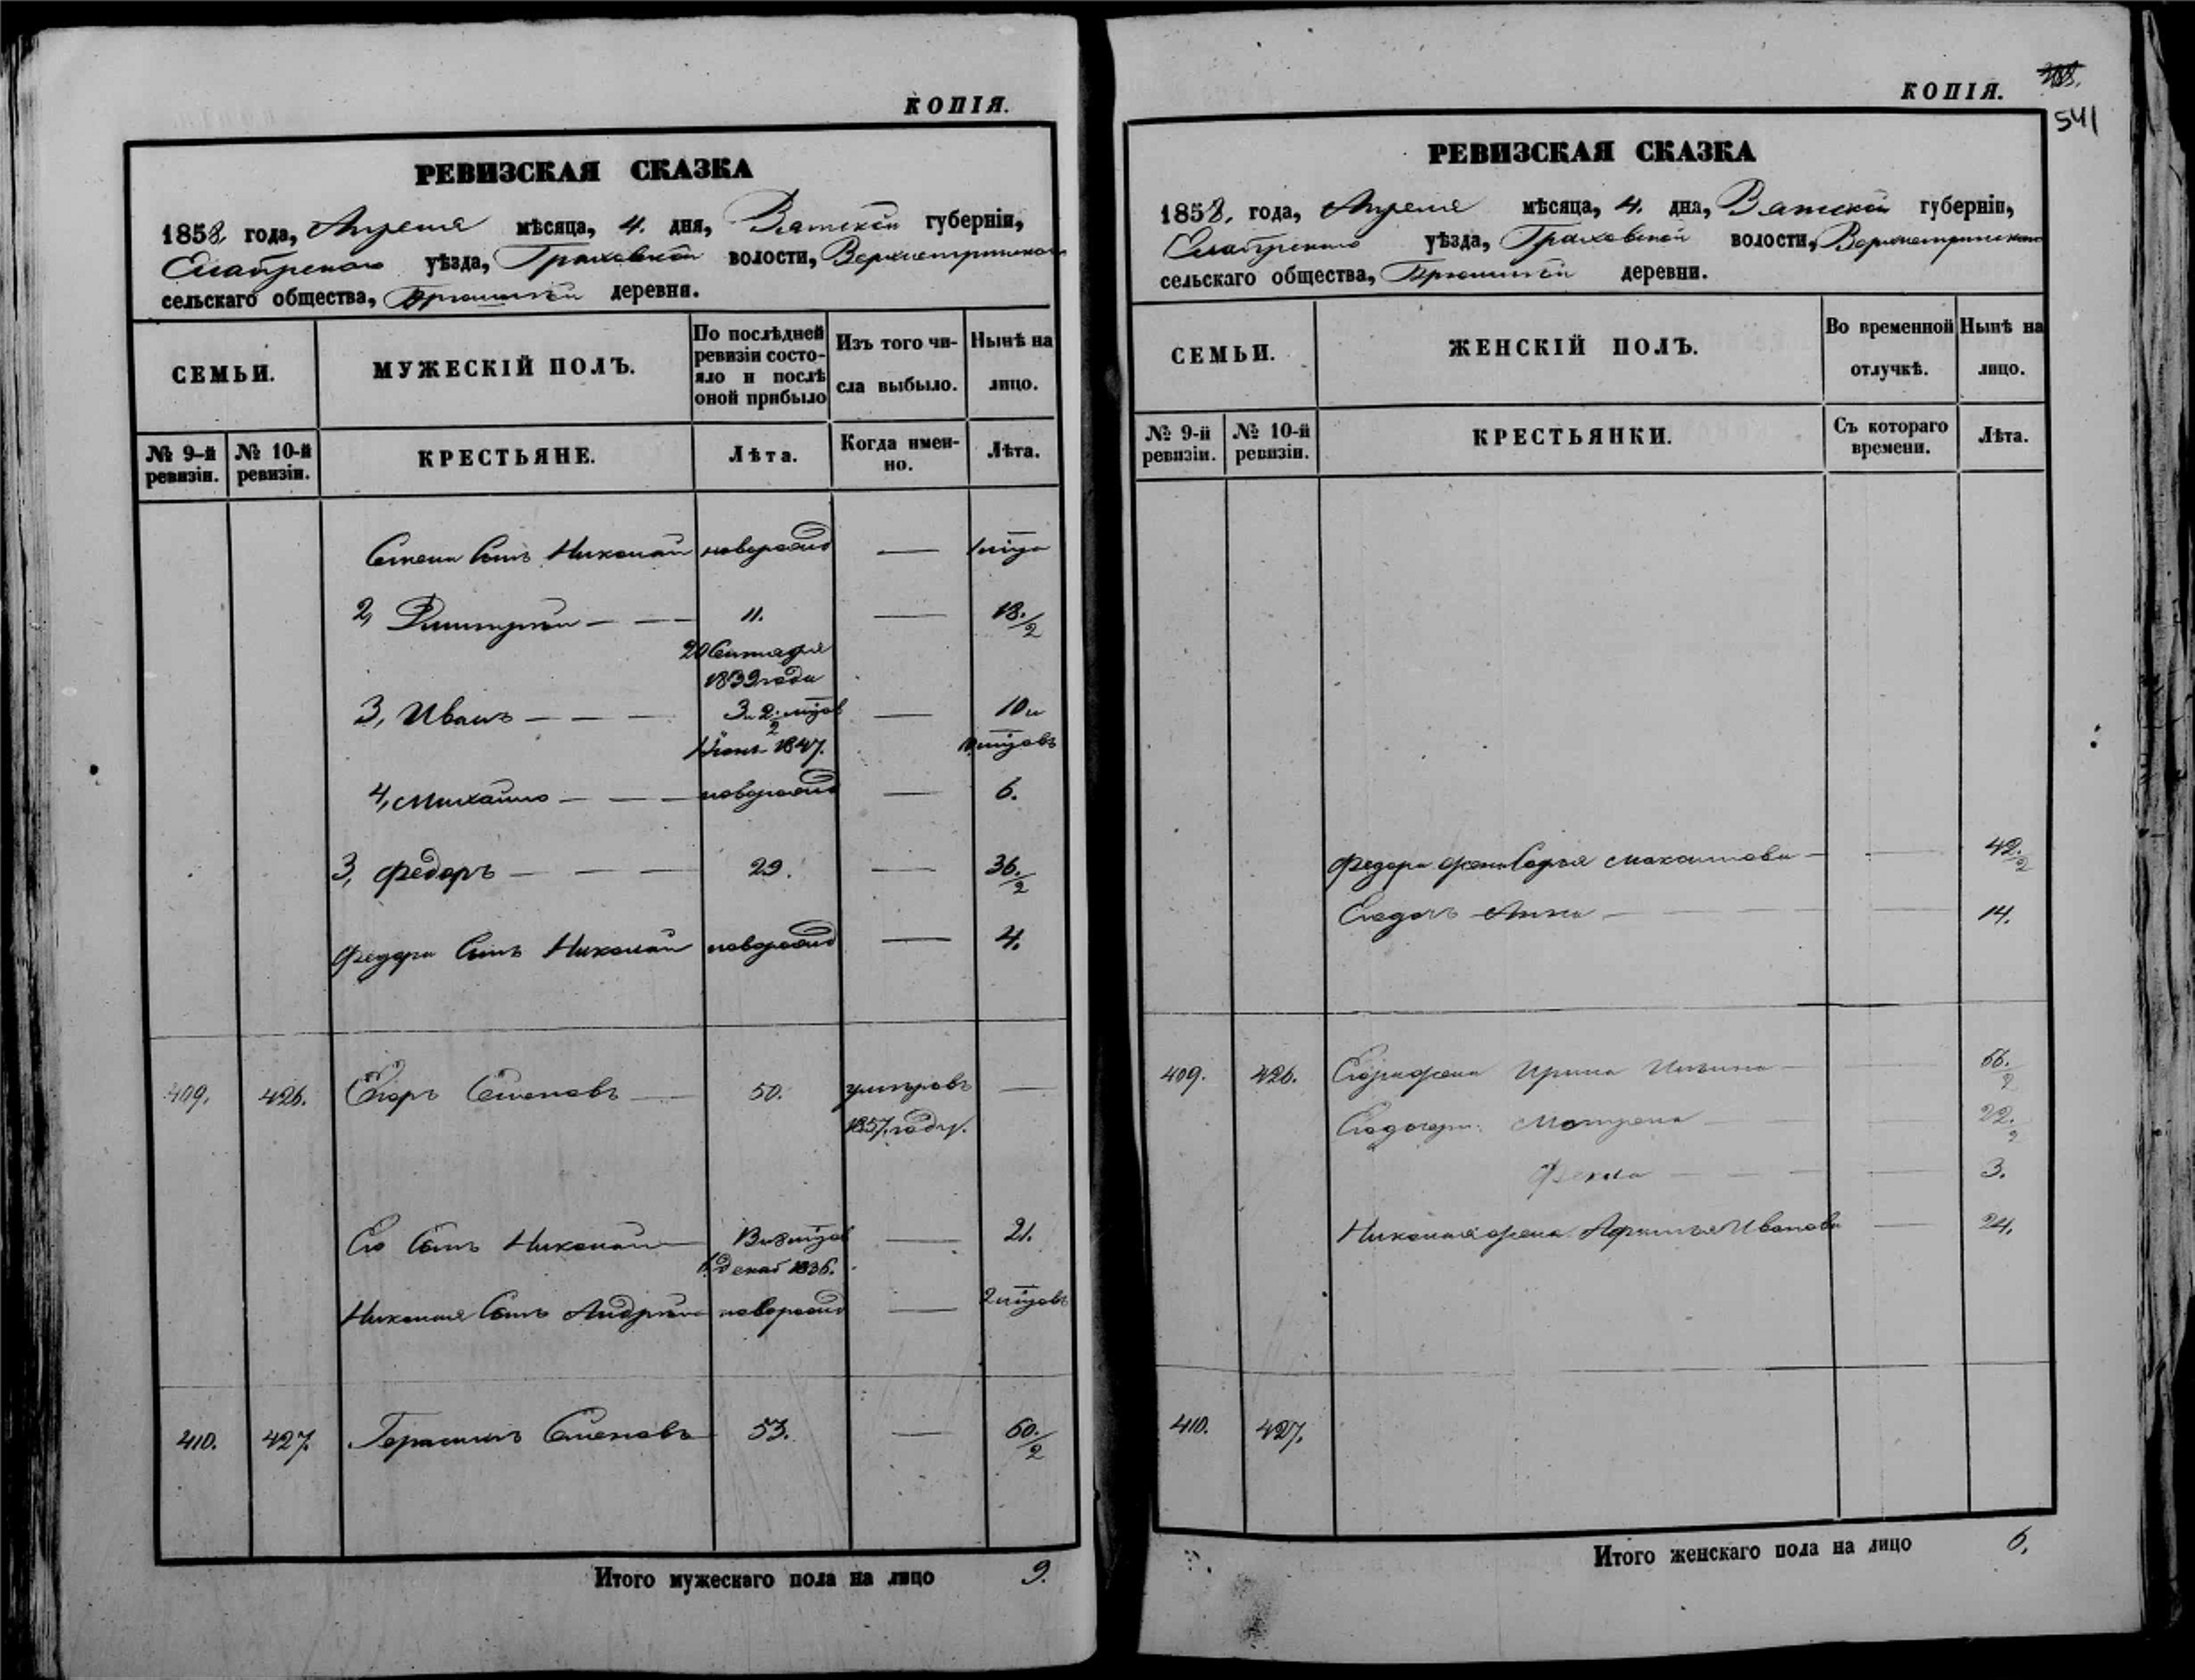 КОПІЯ.
РЕВИЗСКАЯ СКАЗКА
1858 года, Апреля мѣсяца, 4. дня, Вятской губерніи,
Елабужского уѣзда, Граховской волости,
сельскаго общества, деревни.
СЕМЬИ.
МУЖЕСКІЙ ПОЛЪ.
По послѣдней
ревизіи состо-
яло и послѣ
оной прибыло
Изъ того чи-
сла выбыло.
Нынѣ на
лицо.
№ 9-й
ревизіи.
№ 10-й
ревизіи.
КРЕСТЬЯНЕ.
Лѣта.
Когда имен-
но.
Лѣта.
Сынъ Николай новорожд — 1 мѣца
2, Дмитрій — — — 11. — 18./2
20 Сентября
1839 года
3, Иванъ — — — — 10 и
1847.
4, Михайло — — — новорожд — 6.
3, Федоръ — — — 29. — 36./2
Федора Сынъ Николай новорожд — 4.
409. 426. Егоръ Семеновъ — 50. умръ въ —
1857. году.
Его Сынъ Николай — 21.
декаб 1836.
Николая Сынъ новорожд — 2 мѣцовъ
410. 427. Герасимъ Семеновъ 53. — 60./2
Итого мужескаго пола на лицо 9.
КОПІЯ.
541
РЕВИЗСКАЯ СКАЗКА
1858. года, Апреля мѣсяца, 4. дня, Вятской губерніи,
Елабужского уѣзда, Граховской волости,
сельскаго общества, деревни.
СЕМЬИ.
ЖЕНСКІЙ ПОЛЪ.
Во временной
отлучкѣ.
Нынѣ на
лицо.
№ 9-й
ревизіи.
№ 10-й
ревизіи.
КРЕСТЬЯНКИ.
Съ котораго
времени.
Лѣта.
Федора жена Максимова — — 42./2
Его дочь Анна — — — 14.
409. 426. Егора жена Ирина — — /2
Его дочери: Матрена — — 22./2
Фекла — — — 3.
Николая жена Иванова — 24.
410. 427.
Итого женскаго пола на лицо 6.